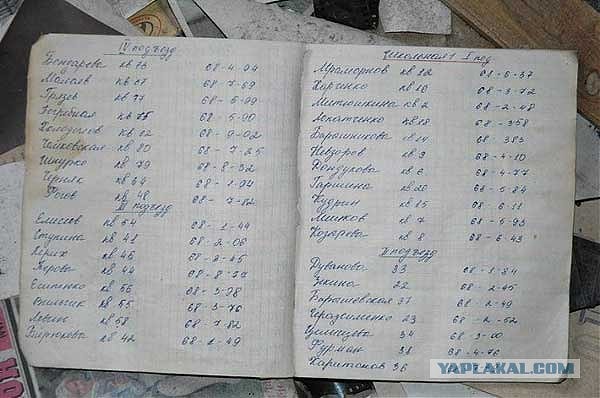 IV подъезд
Бондарева кв 73 68-4-94
Момаев кв 67 68-7-69
Грязев кв 77 68-5-99
Погребная кв 75 68-5-90
Холодолов кв 62 68-9-02
Чайковская кв 80 68-7-25
Шмурко кв 79 68-8-32
Черняк кв 64 68-1-94
Рогов кв 48 68-7-82
III подъезд
Елисеев кв 54 68-1-44
Ступина кв 41 68-2-06
Герих кв 46 68-2-45
Перова кв 44 68-8-77
Есипенко кв 56 68-3-78
Вильчик кв 55 68-3-70
Левин кв 58 68-7-82
Бирюкова кв 42 68-1-49
Школьная 1 I под
Мраморнов кв 12 68-6-37
Харченко кв 10 68-3-72
Митюшкина кв 2 68-2-48
Лопатченко кв 18 68-358
Баранникова кв 14 68-383
Невзоров кв 9 68-4-10
Кондукова кв 6 68-4-77
Гаршина кв 20 68-5-84
Кудрин кв 15 68-6-11
Мишков кв 7 68-5-93
Козырева кв 8 68-6-43
II подъезд
Дуванова 33 68-1-84
Зекина 22 68-2-45
Барашевская 37 68-2-49
Герасименко 23 68-2-52
34 68-3-00
Фурман 38 68-4-76
Харитонов 36
YAPLAKAL.COM